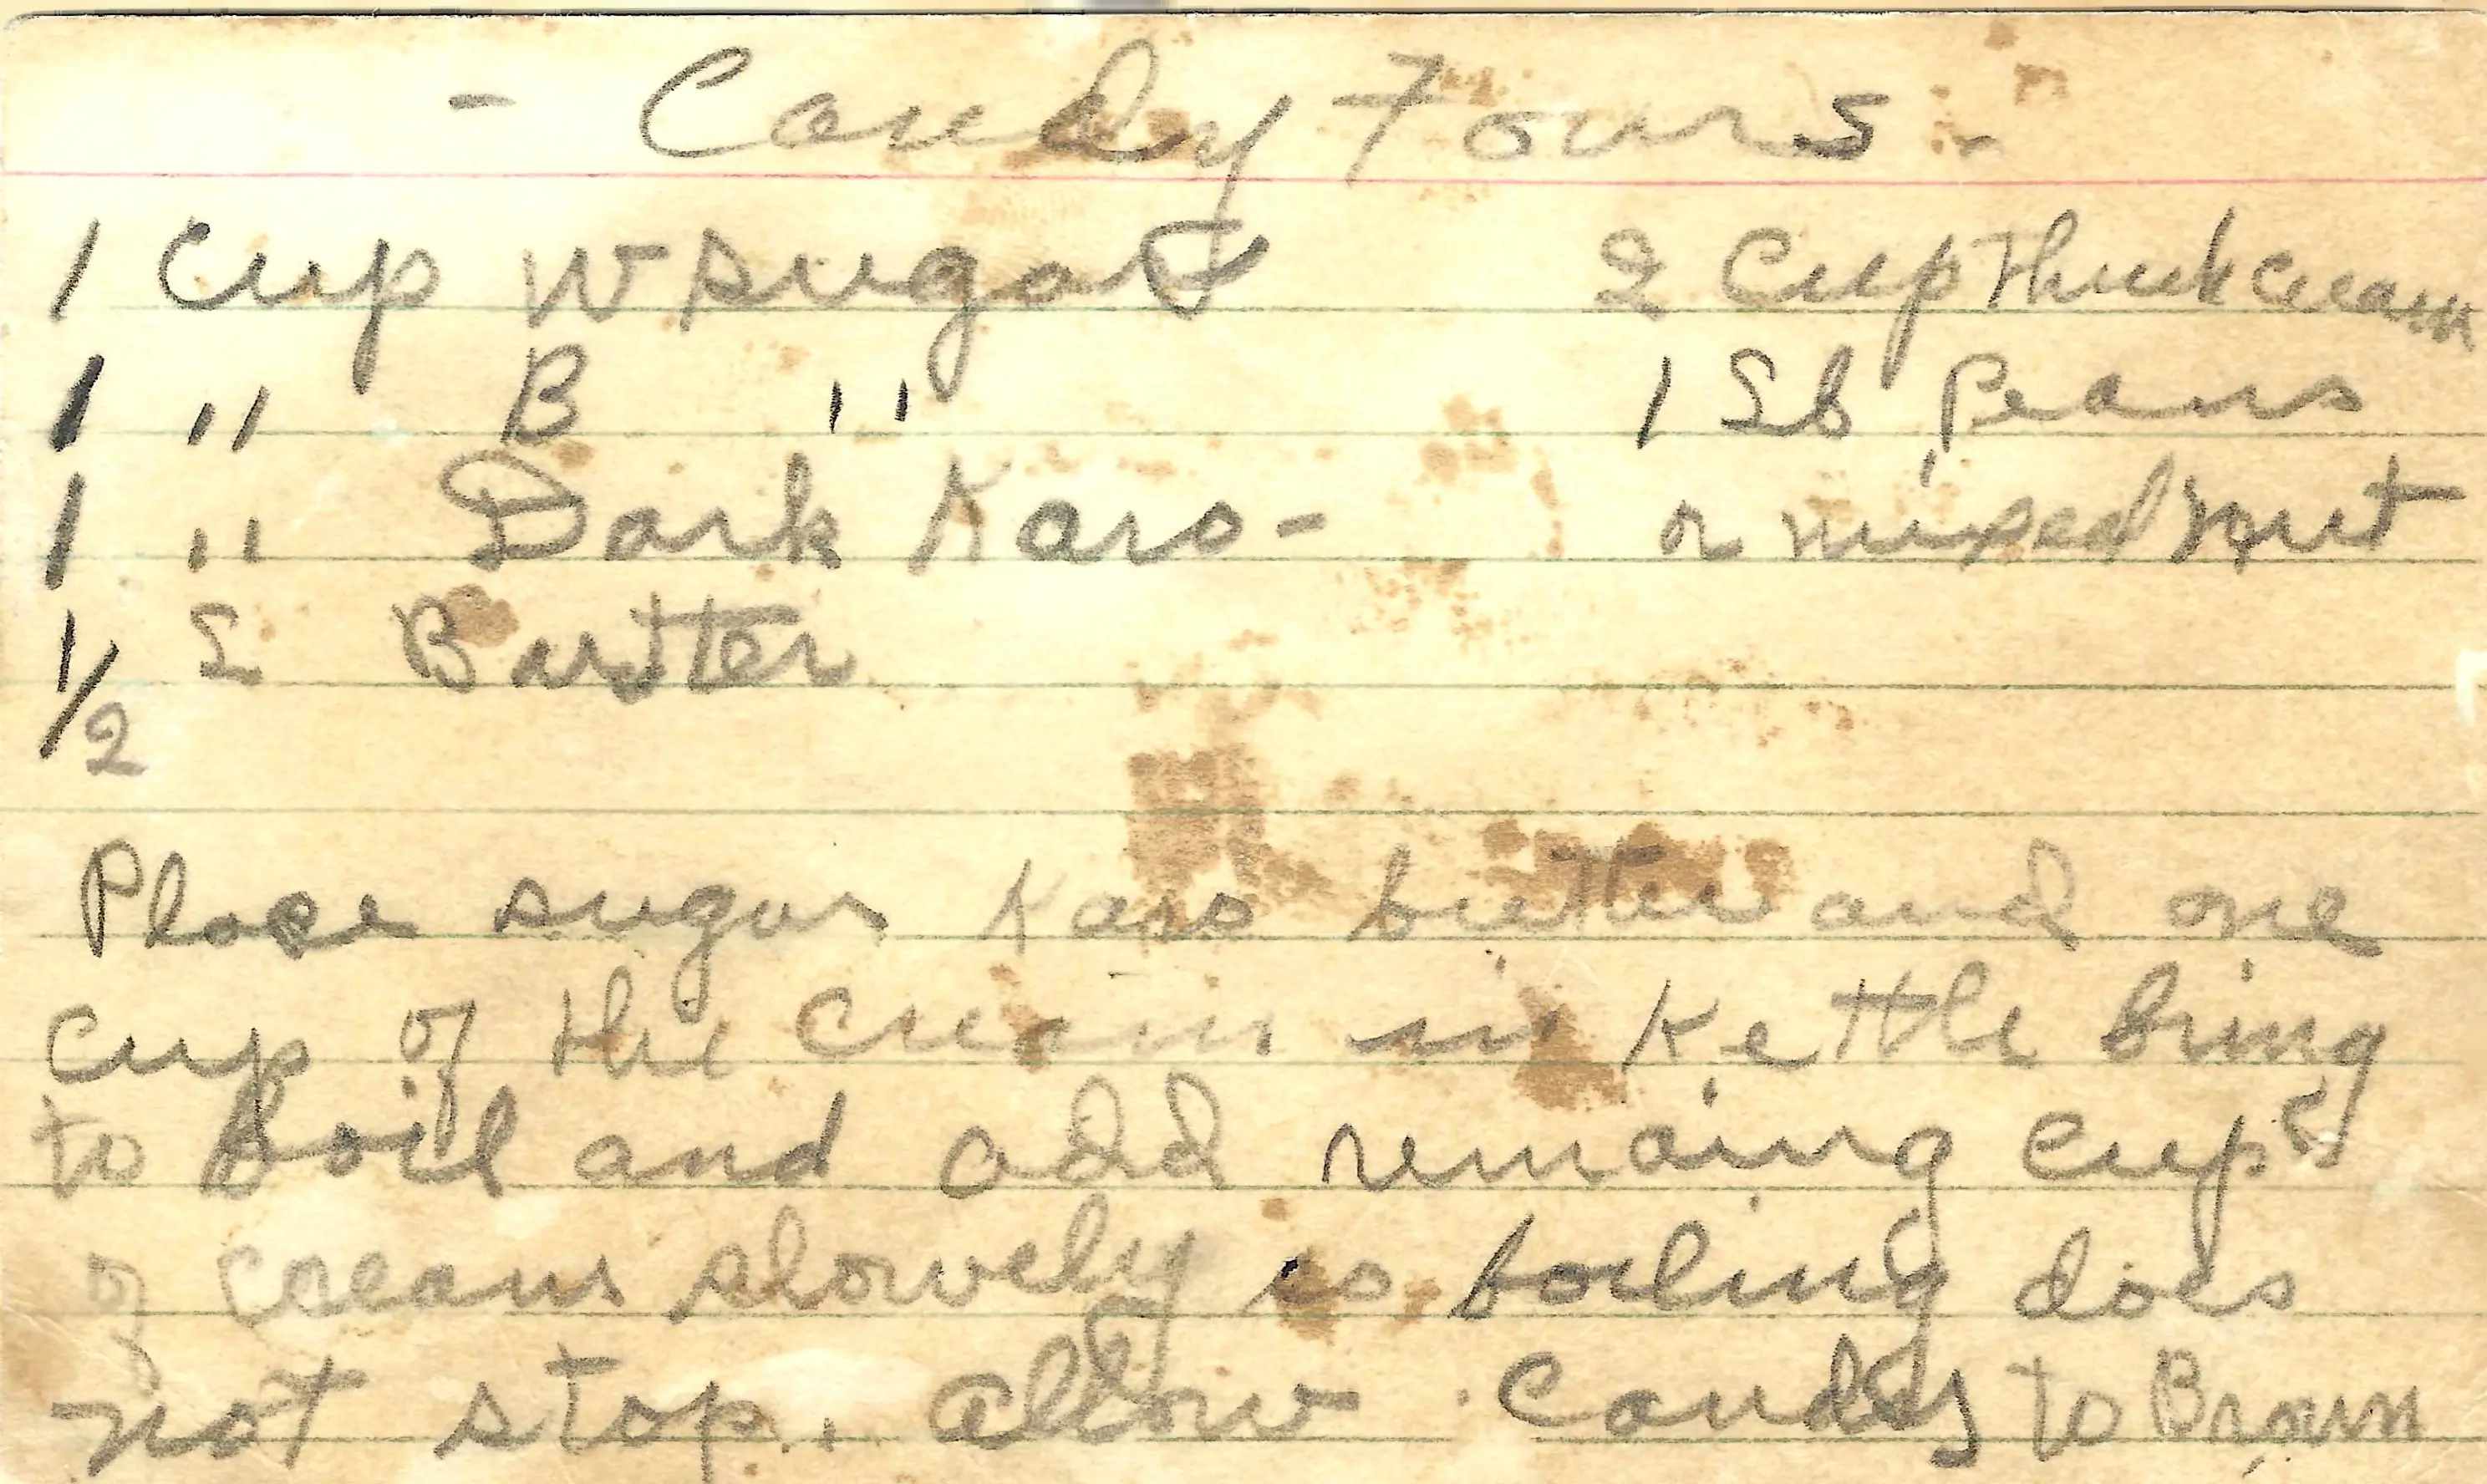 - Candy Fours -
1 Cup W sugar
1 " B "
1 " Dark Karo -
1/2 L Butter
2 Cup Thick Cream
1 Lb Peans
or mixed nut
Place sugar Karo butter and one
cup of the cream in Kettle bring
to boil and add remaing cups
of cream slowely so boiling does
not stop. allow Candy to Brown